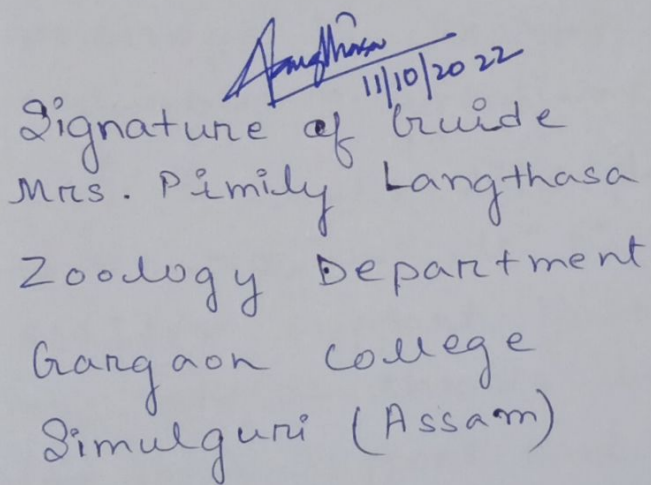 Langthasa
11/10/2022
Signature of Guide
Mrs. Pimily Langthasa
Zoology Department
Gargaon College
Simulguri (Assam)